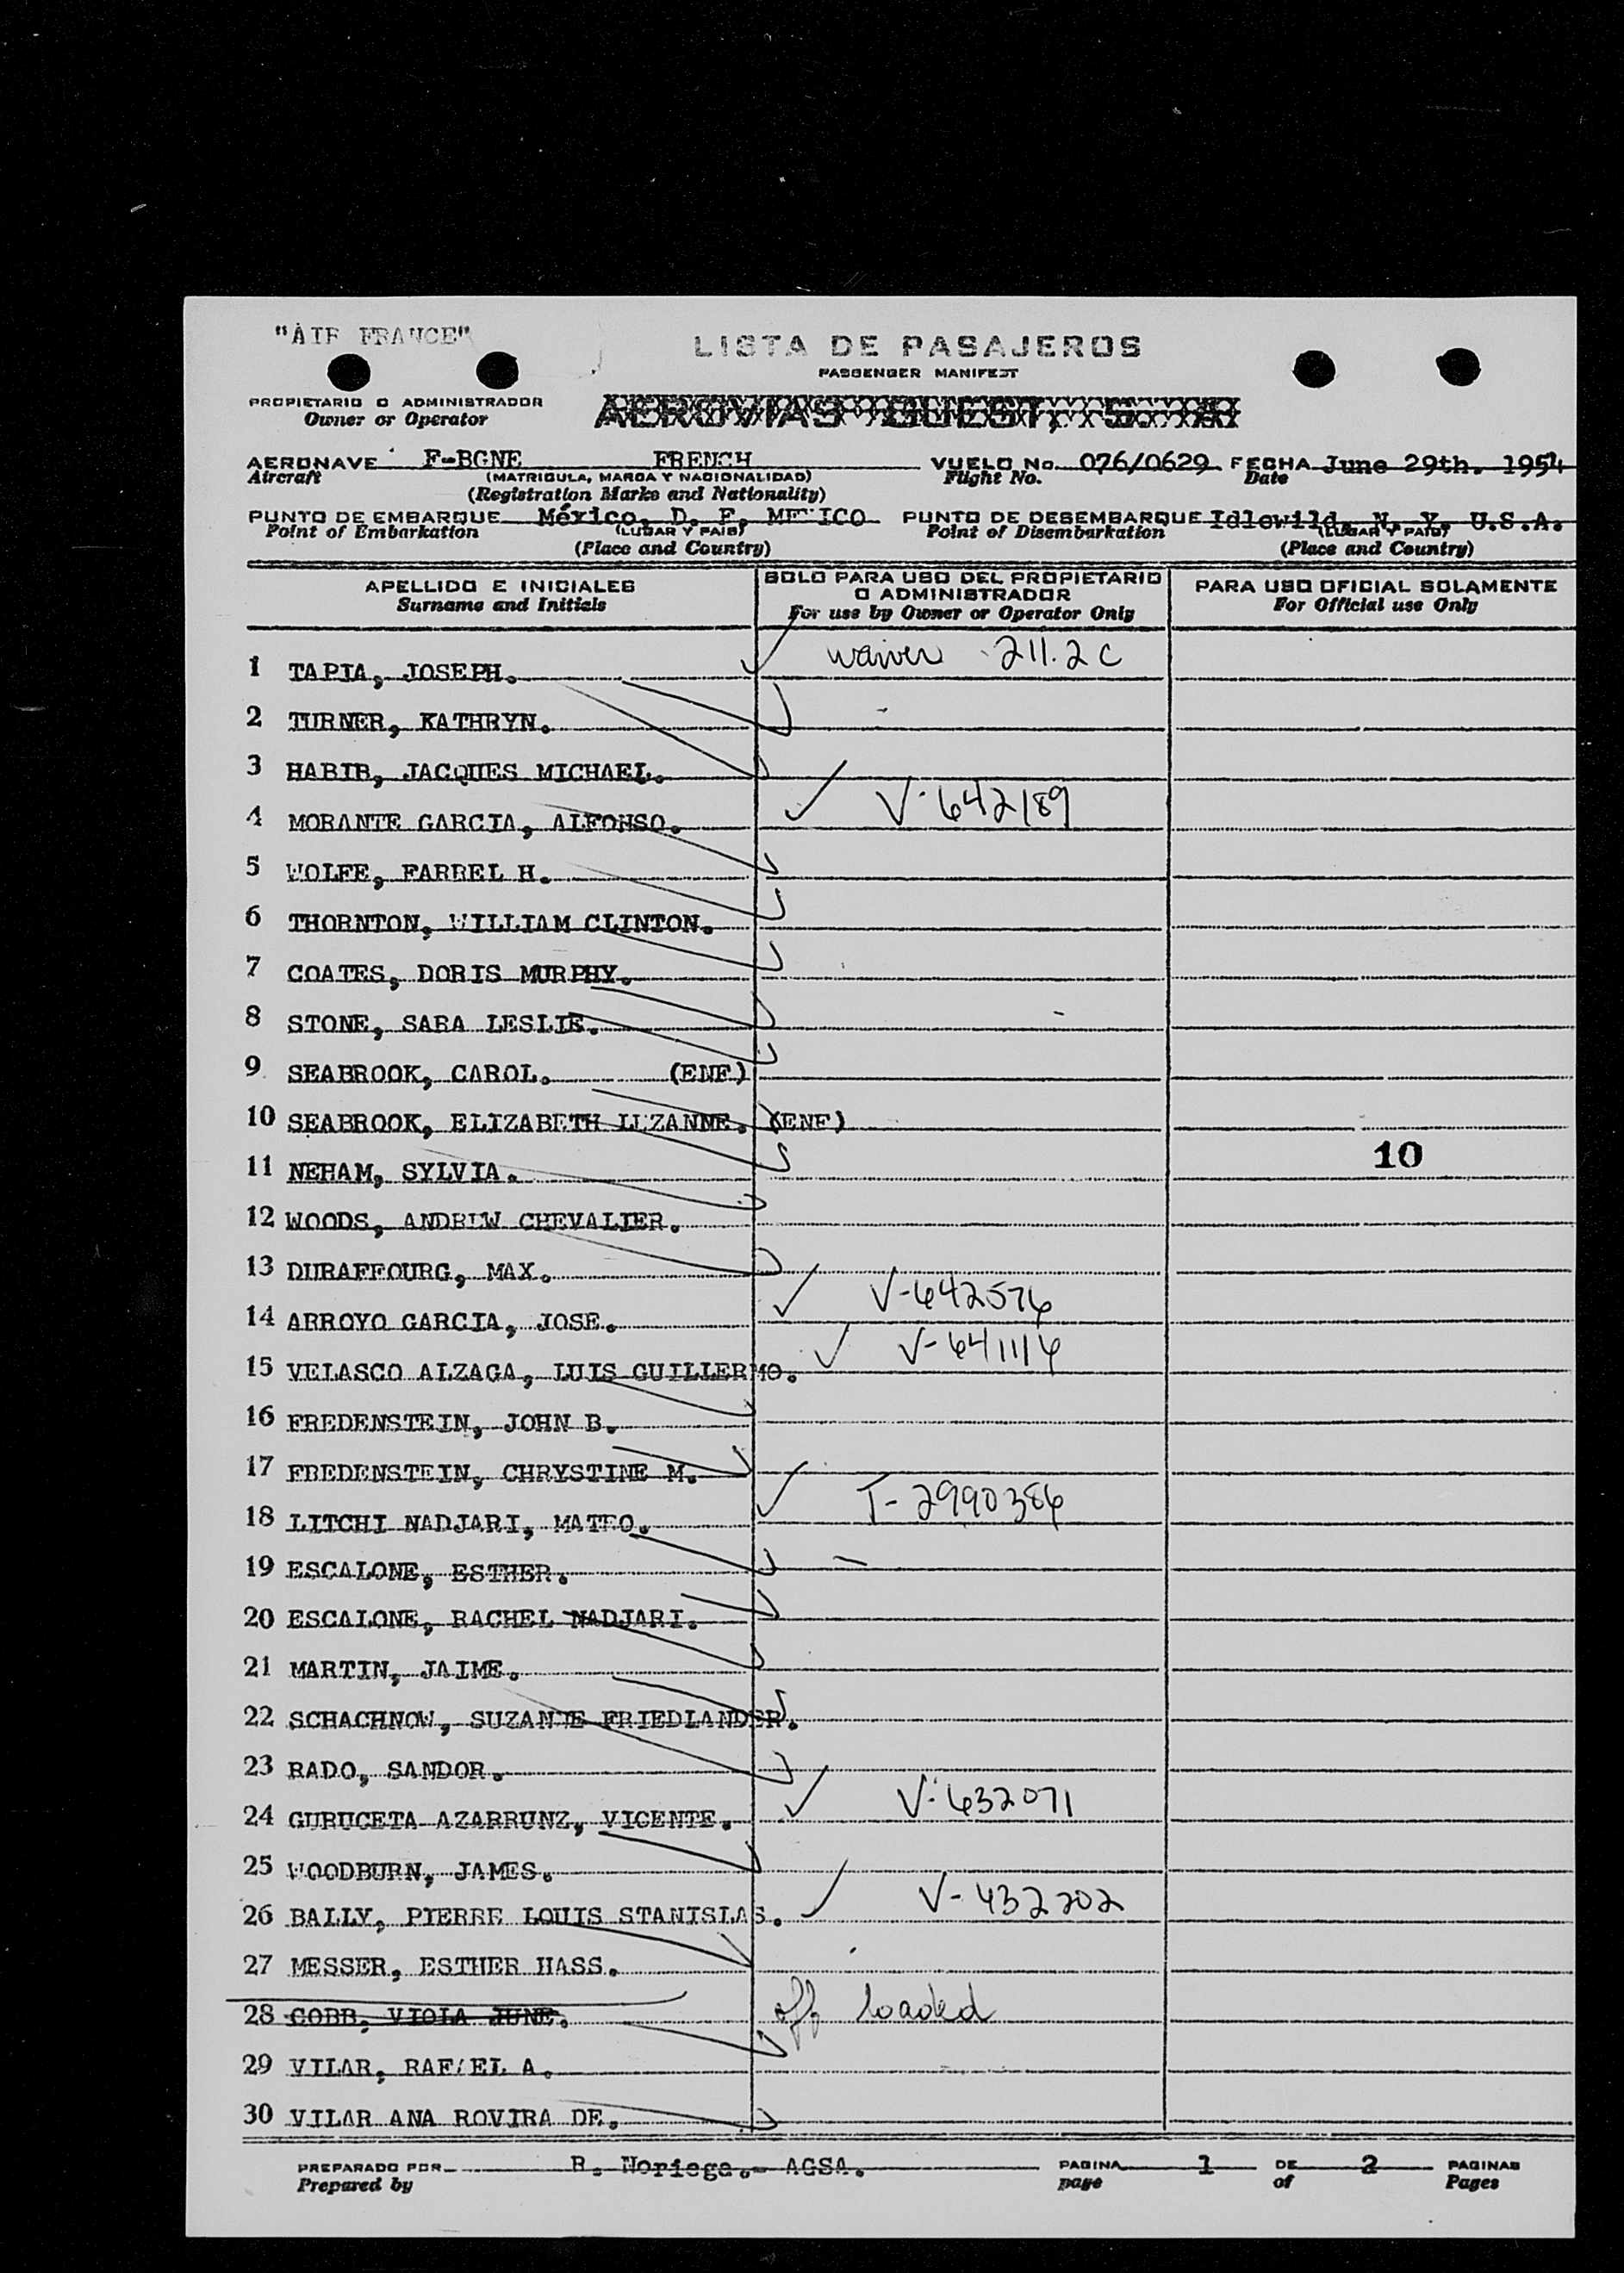 "AIR FRANCE"
LISTA DE PASAJEROS
PASSENGER MANIFEST
PROPIETARIO O ADMINISTRADOR
Owner or Operator
AEROVIAS GUEST, S. A.
AERONAVE F-BGNE FRENCH VUELO No. 076/0629 FECHA June 29th. 1954
Aircraft (MATRICULA, MARCA Y NACIONALIDAD) Flight No. Date
(Registration Marks and Nationality)
PUNTO DE EMBARQUE México, D. F. MEXICO PUNTO DE DESEMBARQUE Idlewild, N. Y. U.S.A.
Point of Embarkation (LUGAR Y PAIS) Point of Disembarkation (LUGAR Y PAIS)
(Place and Country) (Place and Country)
APELLIDO E INICIALES SOLO PARA USO DEL PROPIETARIO O ADMINISTRADOR PARA USO OFICIAL SOLAMENTE
Surname and Initials For use by Owner or Operator Only For Official use Only
1 TAPIA, JOSEPH. waiver 211.2 C
2 TURNER, KATHRYN.
3 HABIB, JACQUES MICHAEL.
4 MORANTE GARCIA, ALFONSO. V-642189
5 WOLFE, FARREL H.
6 THORNTON, WILLIAM CLINTON.
7 COATES, DORIS MURPHY.
8 STONE, SARA LESLIE.
9 SEABROOK, CAROL. (ENF)
10 SEABROOK, ELIZABETH LUZANNE. (ENF)
10
11 NEHAM, SYLVIA.
12 WOODS, ANDREW CHEVALIER.
13 DURAFFOURG, MAX.
14 ARROYO GARCIA, JOSE. V-642576
15 VELASCO ALZAGA, LUIS GUILLERMO. V-641116
16 FREDENSTEIN, JOHN B.
17 FREDENSTEIN, CHRYSTINE M.
18 LITCHI NADJARI, MATEO. T-2990386
19 ESCALONE, ESTHER.
20 ESCALONE, RACHEL NADJARI.
21 MARTIN, JAIME.
22 SCHACHNOW, SUZANNE FRIEDLANDER.
23 RADO, SANDOR.
24 GURUCETA AZARRUNZ, VICENTE. V-632071
25 WOODBURN, JAMES.
26 BALLY, PIERRE LOUIS STANISLAS. V-432202
27 MESSER, ESTHER HASS.
28 COBB, VIOLA JUNE. off loaded
29 VILAR, RAFAEL A.
30 VILAR ANA ROVIRA DE.
PREPARADO POR R. Noriega.- AGSA. PAGINA 1 DE 2 PAGINAS
Prepared by page of Pages